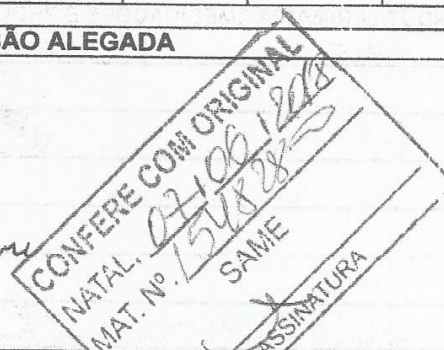 ÃO ALEGADA
CONFERE COM ORIGINAL
NATAL, 07/06/2018
MAT. Nº. 154828-0
SAME
ASSINATURA